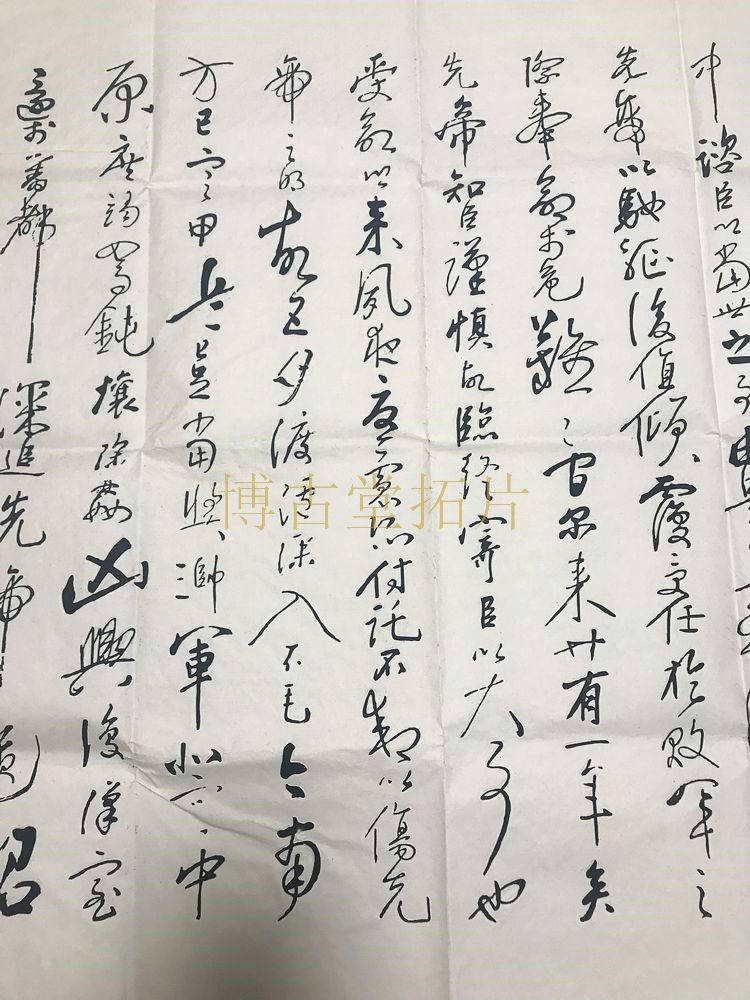 中諮臣以當世之事由是
先帝以馳驅後值傾覆受任於敗軍之
際奉命於危難之間爾來廿有一年矣
先帝知臣謹慎故臨終寄臣以大事也
受命以來夙夜憂慮恐付託不效以傷先
帝之明故五月渡瀘深入不毛今南
方已定甲兵已足當獎三帥軍北定中
原庶竭駑鈍攘除姦凶興復漢室
還於舊都深追先帝遺詔
博古堂拓片